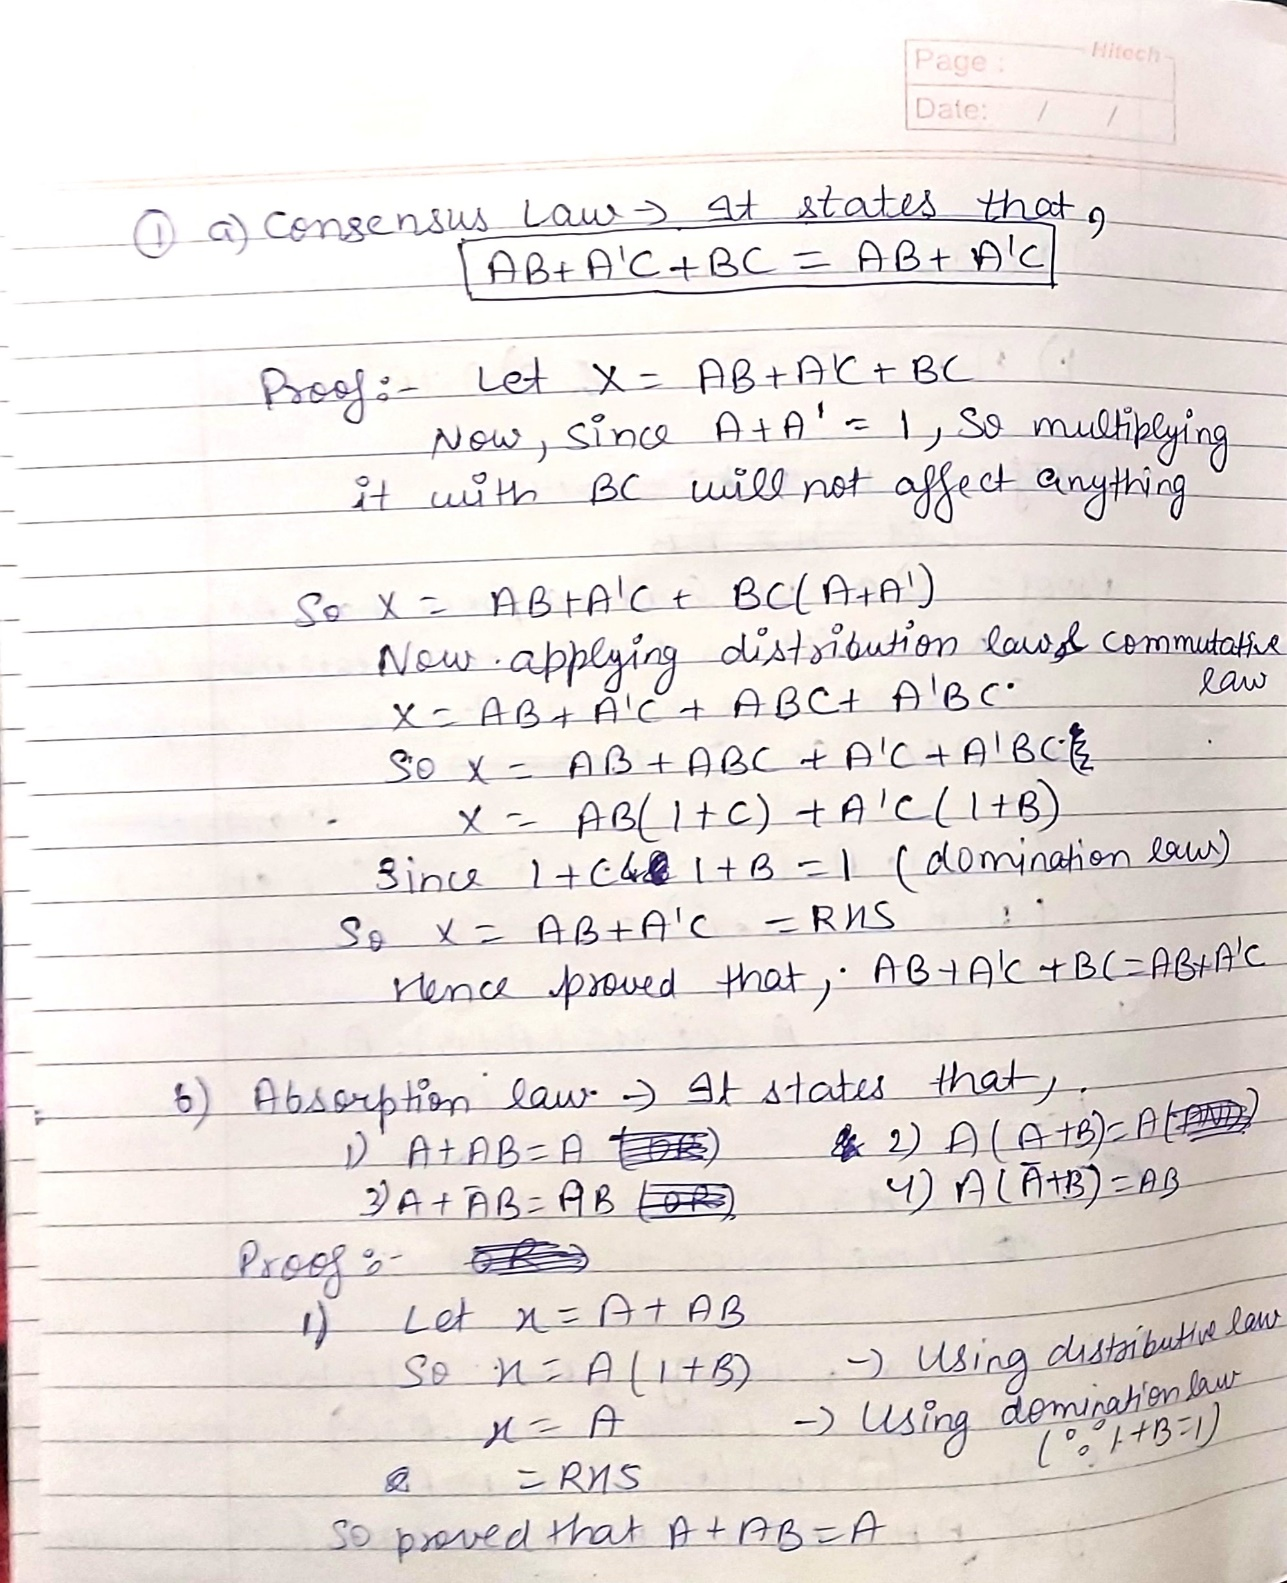 Hitech
Page :
Date: / /
① a) Consensus Law → It states that,
AB + A'C + BC = AB + A'C
Proof :- Let X = AB + A'C + BC
Now, since A + A' = 1, so multiplying
it with BC will not affect anything
So X = AB + A'C + BC(A+A')
Now applying distribution law & commutative
law
X = AB + A'C + ABC + A'BC
So X = AB + ABC + A'C + A'BC
X = AB(1+C) + A'C(1+B)
Since 1+C & 1+B = 1 (domination law)
So X = AB + A'C = RHS
Hence proved that, AB + A'C + BC = AB + A'C
b) Absorption law → It states that,
1) A + AB = A 2) A(A+B) = A
3) A + ĀB = AB 4) A(Ā+B) = AB
Proof :-
1) Let x = A + AB
So x = A(1+B) → Using distributive law
x = A → Using domination law
(∵ 1+B=1)
= RHS
So proved that A + AB = A